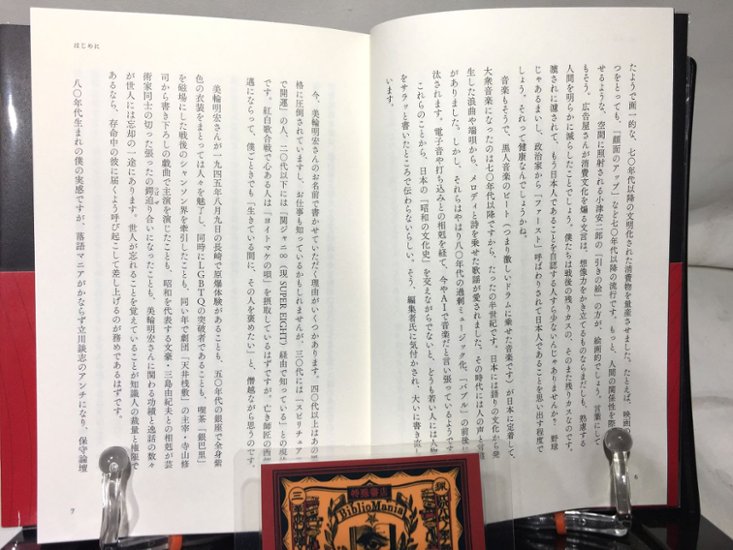 たようで画一的な、七〇年代以降の文明化された消費物を量産させました。たとえば、映画
つをとっても、「顔面のアップ」など七〇年代以降の流行です。もっと、人間の関係性を際
せるような、空間に照射される小津安二郎の「引きの絵」の方が、絵画的でしょう。言葉にして
もそう。広告屋さんが消費文化を煽る文言は、想像力をかき立てるものならまだしも、熟慮する
人間を明らかに減らしたことでしょう。僕たちは戦後の残りカスの、そのまた残りカスなのです。
濾されに濾されて、もう日本人であることを自認する人すら少ないんじゃありませんか? 野球
じゃあるまいし、政治家から「ファースト」呼ばわりされて日本人であることを思い出す程度で
しょう。それって健康なんでしょうかね。
音楽もそうで、黒人音楽のビート(つまり激しいドラムに乗せた音楽です)が日本に定着して、
大衆音楽になったのは七〇年代以降ですから、たった半世紀です。日本には語りの文化から発
生した浪曲や端唄から、メロディと詩を乗せた歌謡が愛されました。その時代には人の声と音
がありました。しかし、それらはやはり八〇年代の過剰ミュージック化、「バブル」の前後に
汰されます。電子音や打ち込みとの相剋を経て、今やAIで音楽だと言い張っているようです
これらのことから、日本の「昭和の文化史」を交えながらでないと、どうも若い人には人物
をサラッと書いたところで伝わらないらしい。そう、編集者氏に気付かされ、大いに書き直し
います。
6
はじめに
今、美輪明宏さんのお名前で書かせていただく理由がいくつかあります。四〇代以上はあの風
格に圧倒されていますし、お仕事も知っているかもしれませんが、三〇代は「スピリチュア
で開運」の人、二〇代以下には「関ジャニ∞(現SUPER EIGHT)経由で知っている」との現
です。紅白歌合戦で心ある人は「ヨイトマケの唄」を摂取しているはずですが。亡き師匠の西部
邁にならって、僕ごときでも「生きている間に、その人を褒めたい」と、僭越ながら思うのです。
美輪明宏さんが一九四五年八月九日の長崎で原爆体験があることも、五〇年代の銀座で全身紫
色の衣装をまとっては人々を魅了し、同時にLGBTQの突破者であることも、喫茶「銀巴里」
を磁場にした戦後のシャンソン界を牽引したことも、同い年で劇団「天井桟敷」の主宰・寺山修
司から書き下ろしの戯曲で主演を演じたことも、昭和を代表する文豪・三島由紀夫との相剋が芸
術家同士の切った張ったの鍔迫り合いになったことも、美輪明宏さんに関わる功績と逸話の数々
が世人には忘却の一途にあります。世人が忘れることを覚えていることが知識人の裁量と権限で
あるなら、存命中の彼に届くよう呼び起こして差し上げるのが務めであるはずです。
八〇年代生まれの僕の実感ですが、落語マニアがかならず立川談志のアンチになり、保守論壇
7
特殊書店
BiblioMania